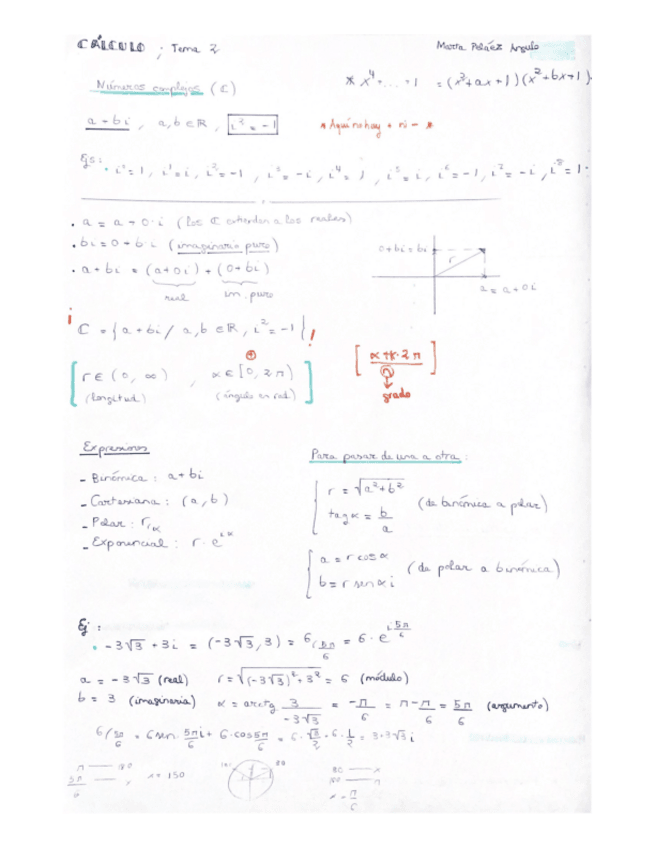 CÁLCULO ; Tema 2
Marta Peláez Angulo
Números complejos (ℂ)
* x⁴+ ... + 1 = (x²+ax+1)(x²+bx+1)
a + bi , a,b ∈ ℝ , i² = -1
* Aquí no hay + ni - *
Ejs: i⁰=1, i¹=i, i²=-1, i³=-i, i⁴=1, i⁵=i, i⁶=-1, i⁷=-i, i⁸=1
· a = a + 0·i (los ℂ extienden a los reales)
· bi = 0 + b·i (imaginario puro)
0+bi = bi
r
a = a + 0i
· a+bi = (a+0i) + (0+bi)
real im. puro
¡ ℂ = {a+bi / a,b ∈ ℝ, i² = -1} !
[ r ∈ (0, ∞) , α ∈ [0, 2π) ]
(longitud) (ángulo en rad)
+
[ α+k·2π / n ]
grado
Expresiones
- Binómica : a+bi
- Cartesiana : (a,b)
- Polar : r/α
- Exponencial : r·e^iα
Para pasar de una a otra :
r = √a²+b²
tag α = b/a
(de binómica a polar)
a = r cos α
b = r sen α i
(de polar a binómica)
Ej :
· -3√3 + 3i = (-3√3, 3) = 6/5π/6 = 6·e^i5π/6
a = -3√3 (real) r = √(-3√3)²+3² = 6 (módulo)
b = 3 (imaginaria) α = arctg 3/-3√3 = -π/6 = π-π/6 = 5π/6 (argumento)
6/5π/6 = 6 sen 5π/6 i + 6·cos 5π/6 = 6·√3/2 + 6·1/2 = 3+3√3 i
π — 180
5π/6 — x
x = 150
180 — x
x = π/6